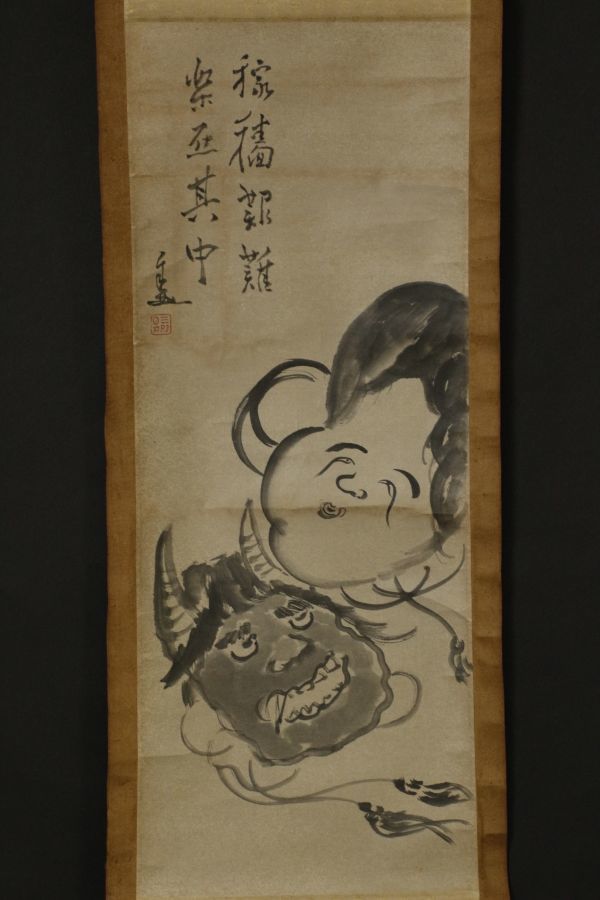 稼穡艱難
楽在其中